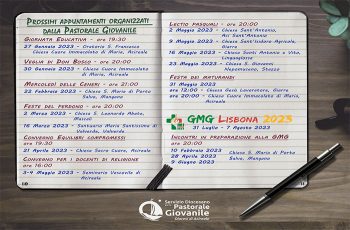 Prossimi appuntamenti organizzati
dalla Pastorale Giovanile
Giornata Educativa - ore 19:30
27 Gennaio 2023 - Oratorio S. Francesco
Chiesa Cuore Immacolato di Maria, Acireale
Veglia di Don Bosco - ore 20:00
30 Gennaio 2023 - Chiesa Cuore Immacolato
di Maria, Acireale
Mercoledì delle Ceneri - ore 21:00
22 Febbraio 2023 - Chiesa S. Maria di Porto
Feste del perdono - ore 20:00
Marzo 2023 - Chiesa S. Leonardo Abate,
Mascali
16 Marzo 2023 - Santuario Maria Santissima di
Valverde, Valverde
Convegno Equilibri compromessi
ore 19:30
21 Aprile 2023 - Chiesa Sacro Cuore, Acireale
Convegno per i docenti di religione
ore 16:00
3-4 Maggio 2023 - Seminario Vescovile,
Acireale
Lectio pasquali - ore 20:00
2 Maggio 2023 - Chiesa Sant'Antonio,
Aci Sant'Antonio
9 Maggio 2023 - Chiesa Cuore,
Giarre
16 Maggio 2023 - Chiesa Santi Antonio e Vito,
Linguaglossa
23 Maggio 2023 - Chiesa S. Giovanni
Nepomuceno, Stazzo
Festa dei maturandi
ore 12:00 - Chiesa Gesù Lavoratore, Giarre
ore 20:00 - Chiesa Cuore Immacolato di Maria,
Acireale
GMG Lisbona 2023
31 Luglio - 7 Agosto 2023
Incontri in preparazione alla GMG
ore 20:00
10 Febbraio 2023 - Chiesa S. Maria di Porto
28 Aprile 2023 - Salvo, Mangano
9 Giugno 2023
Servizio Diocesano
Pastorale
Giovanile
Diocesi di Acireale